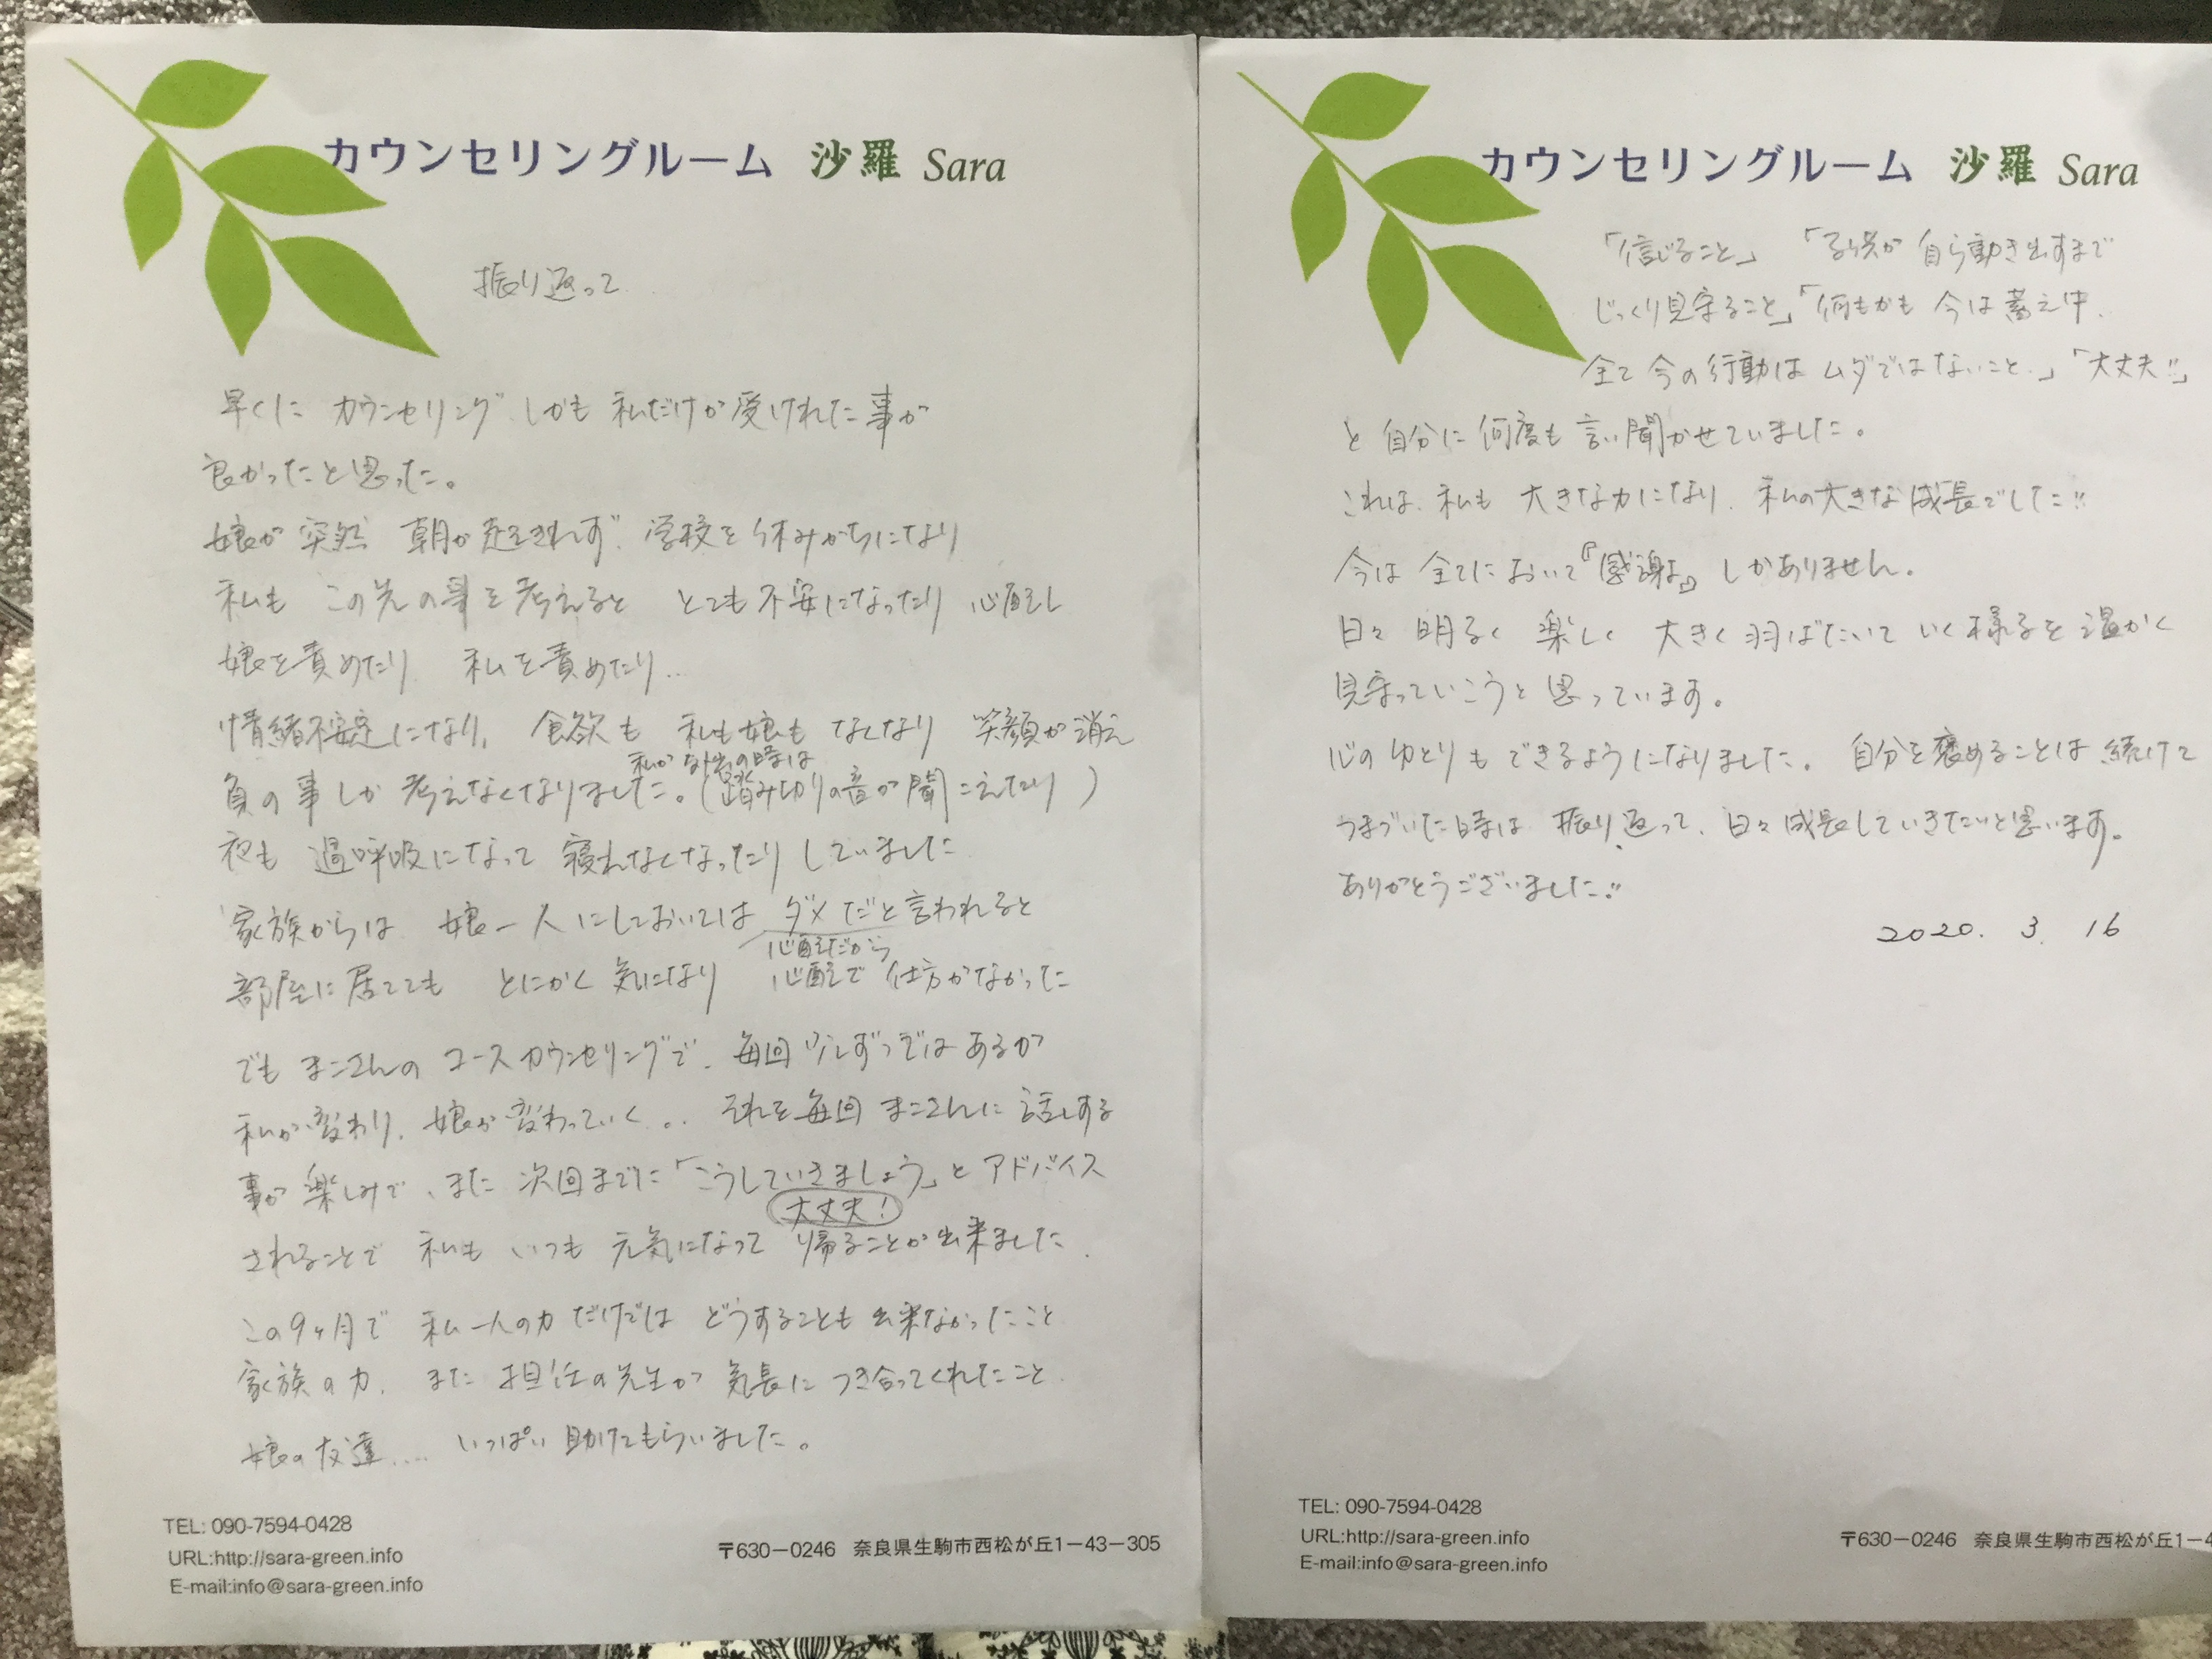 カウンセリングルーム 沙羅 Sara
振り返って
早くに カウンセリング しかも 私だけが受けれた事が
良かったと思った。
娘が突然 朝が起きれず、学校を休みがちになり
私も この先の事を考えると とても不安になったり 心配し
娘を責めたり 私を責めたり…
情緒不安定になり、食欲も 私も娘も なくなり 笑顔が消え
私が外出の時は
負の事しか考えなくなりました。(踏み切りの音が聞こえたり)
夜も 過呼吸になって 寝れなくなったりしていました
家族からは 娘一人にしておいては ダメだと言われると
心配だから
部屋に居てても とにかく気になり 心配で仕方がなかった
でも まこさんの コースカウンセリングで、毎回少しずつではあるが
私が変わり、娘が変わっていく.. それを毎回 まこさんに話しする
事が楽しみで、また次回までに「こうしていきましょう」とアドバイス
大丈夫!
されることで 私も いつも 元気になって 帰ることが出来ました.
この9ヶ月で 私一人の力だけでは どうすることも出来なかったこと
家族の力、また 担任の先生が 気長に つき合ってくれたこと.
娘の友達.... いっぱい助けてもらいました。
TEL: 090-7594-0428
URL:http://sara-green.info
E-mail:info@sara-green.info
〒630−0246 奈良県生駒市西松が丘1−43−305
カウンセリングルーム 沙羅 Sara
「信じること」 「子供が 自ら動き出すまで
じっくり見守ること」「何もかも 今は蓄え中.
全て 今の行動は ムダではないこと.」「大丈夫!!」
と 自分に 何度も 言い聞かせていました。
これは、私も 大きな力になり、私の大きな成長でした!!
今は 全てにおいて『感謝』しかありません。
日々 明るく 楽しく 大きく羽ばたいて いく様子を 温かく
見守っていこうと 思っています。
心のゆとりもできるようになりました。自分を褒めることは続けて
つまづいた時は 振り返って、日々成長していきたいと思います。
ありがとうございました!!
2020. 3. 16
TEL: 090-7594-0428
URL:http://sara-green.info
E-mail:info@sara-green.info
〒630−0246 奈良県生駒市西松が丘1−4